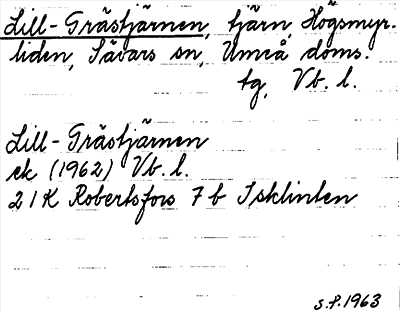 Lill-Grästjärnen, tjärn, Högsmyr-
liden, Sävars sn, Umeå doms.
tg, Vb. l.
Lill-Grästjärnen
ek (1962) Vb. l.
21K Robertsfors 7b Isklinten
S.P. 1963